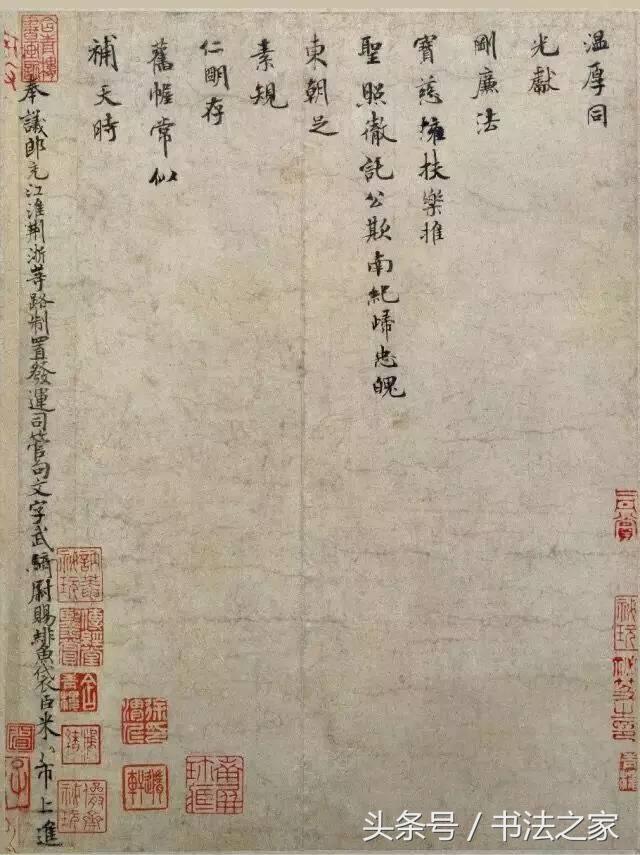 温厚同
光獻
剛廉法
寶慈擁扶樂推
聖照徹託公欺南紀歸忠魄
東朝足
素規
仁明存
舊幄常似
補天時
奉議郎充江淮荆浙等路制置發運司管勾文字武騎尉賜緋魚袋臣米芾上進
头条号 / 书法之家